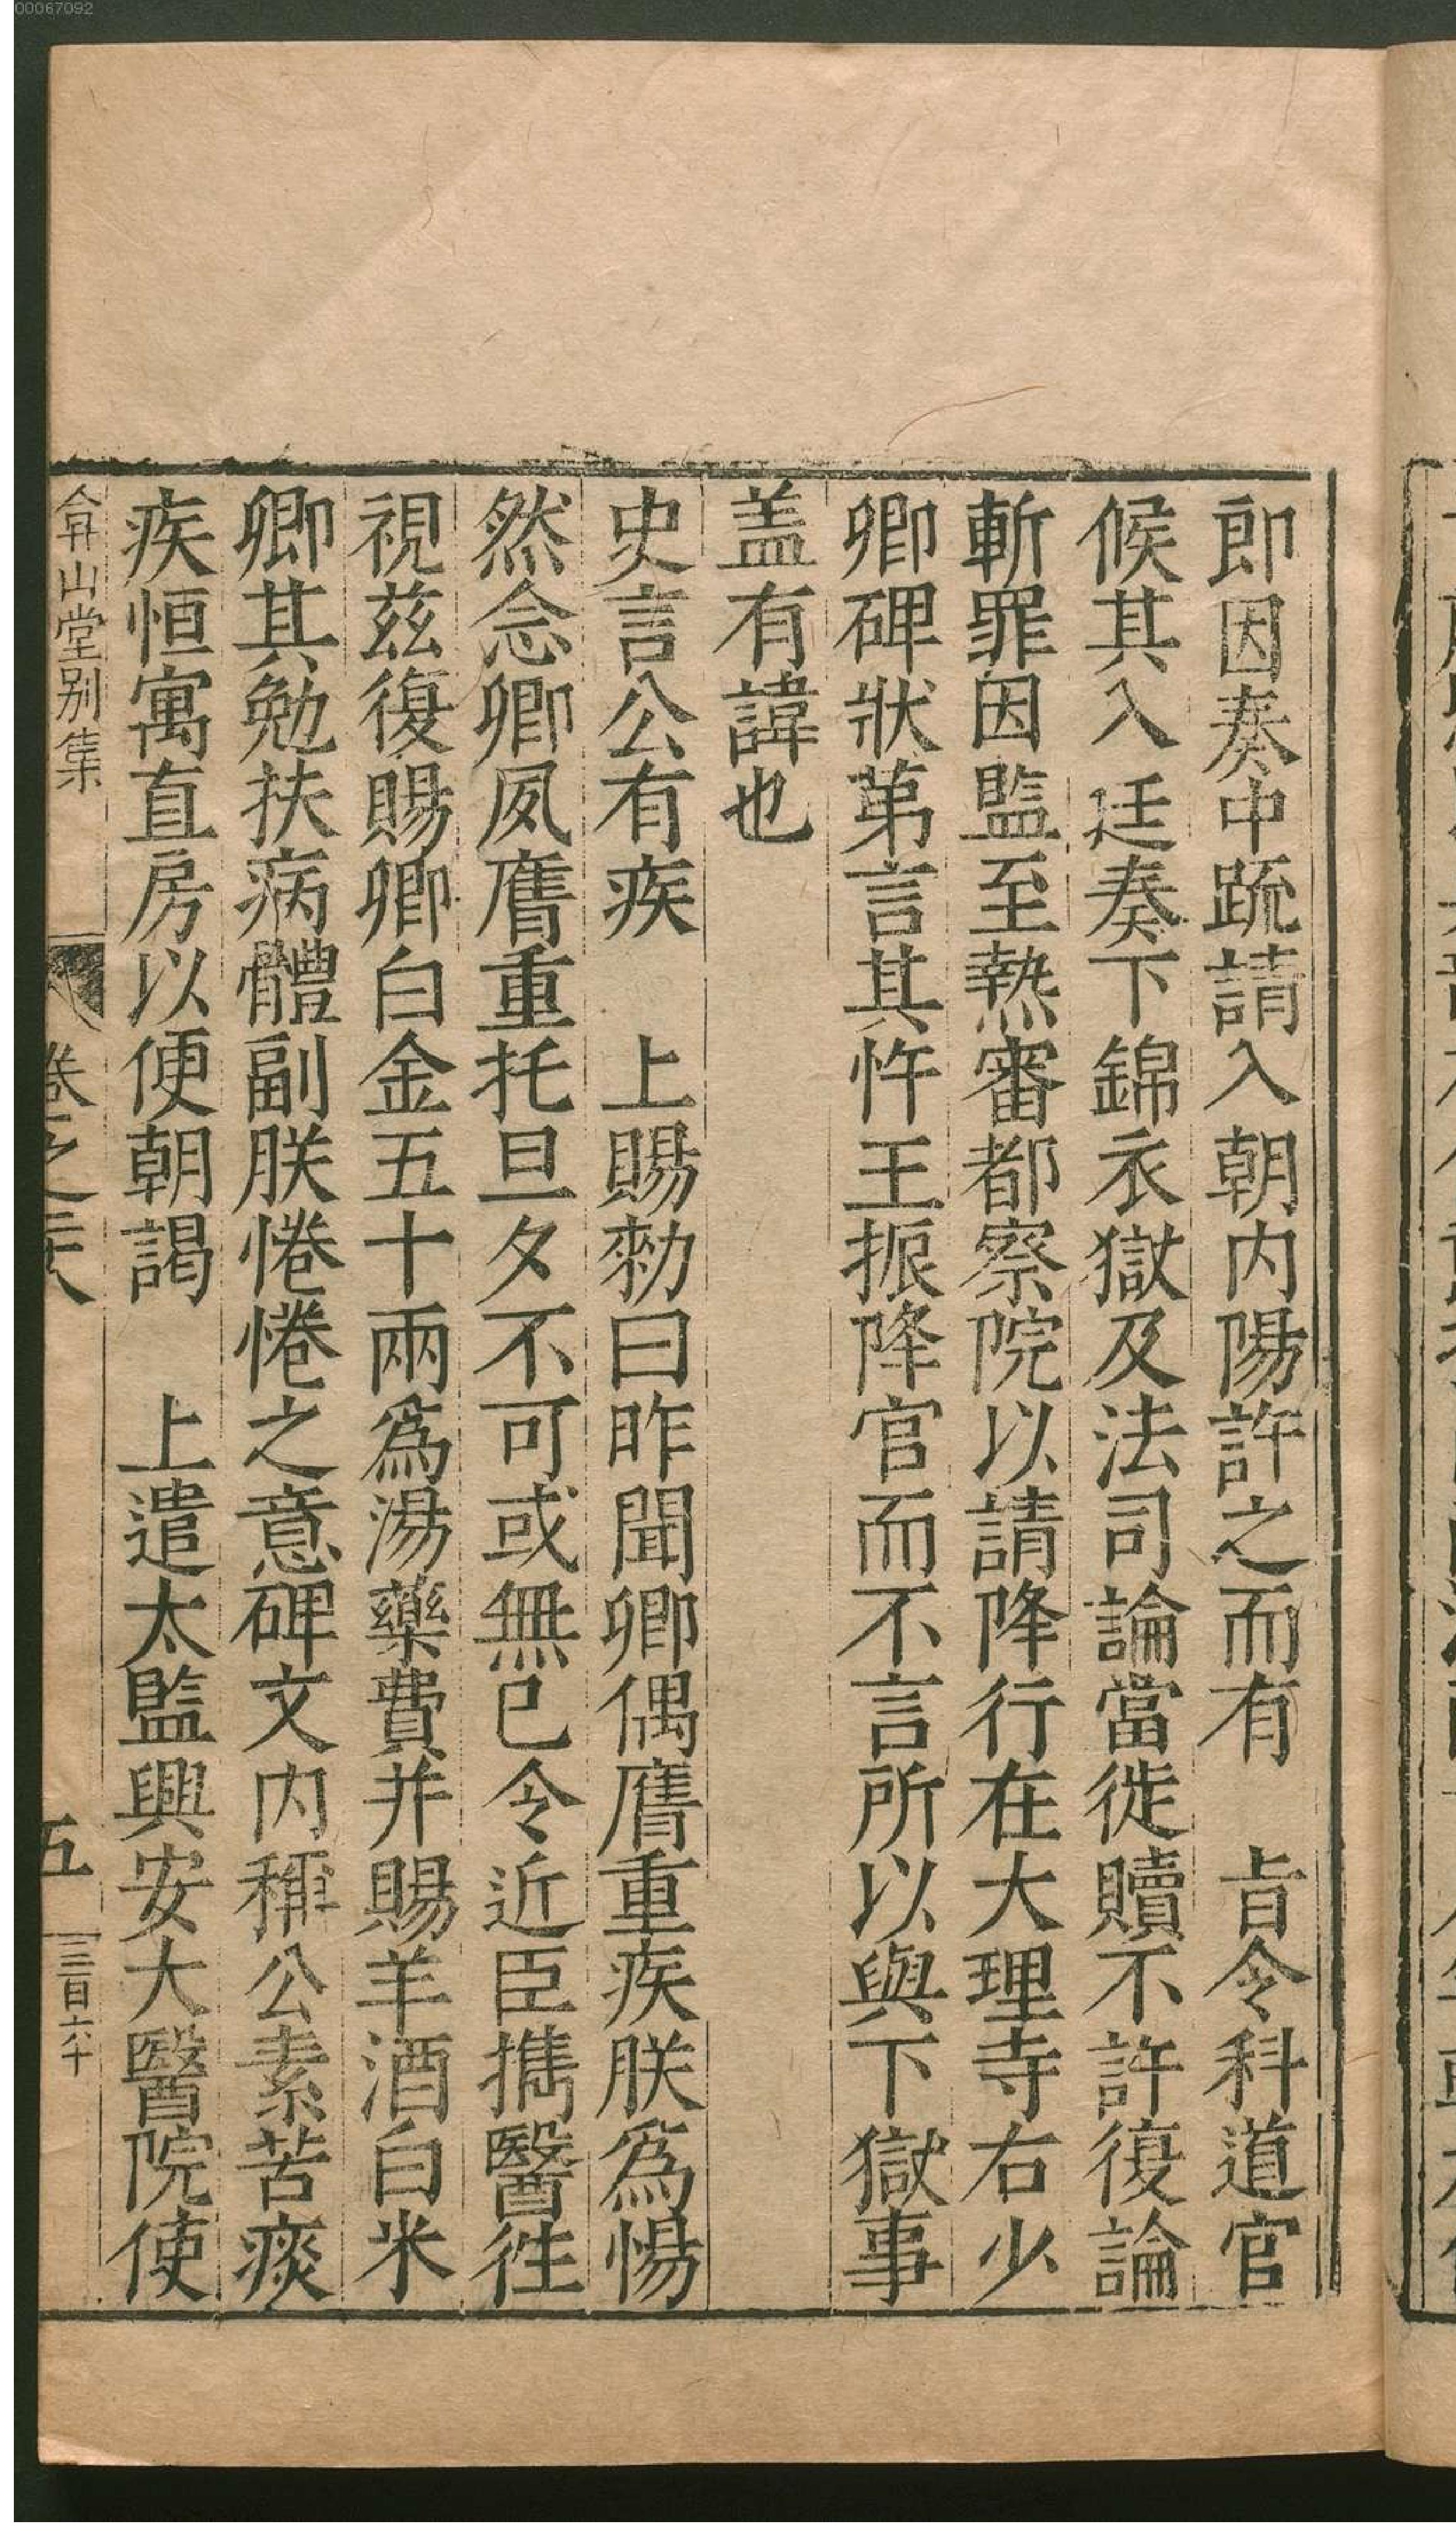 00067092
即因奏中䟽請入朝内陽許之而有　旨令科道官
候其入廷奏下錦衣獄及法司論當徙贖不許復論
斬罪因監至熱審都察院以請降行在大理寺右少
卿碑狀第言其忤王振降官而不言所以與下獄事
盖有諱也
史言公有疾　上賜勑曰昨聞卿偶膺重疾朕爲惕
然念卿夙膺重托旦夕不可或無已令近臣擕醫徃
視茲復賜卿白金五十兩爲湯藥費并賜羊酒白米
卿其勉扶病體副朕惓惓之意碑文内稱公素苦痰
疾恒寓直房以便朝謁　上遣太監興安大醫院使
弇山堂别集　卷之二十八　五　三百六十